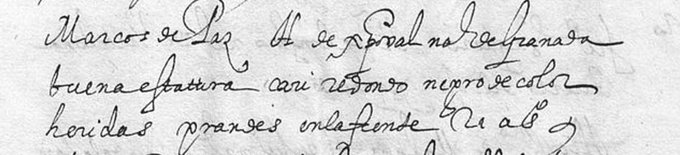 Marcos de Paz H de xpoval nal de Granada
buena estatura cari redondo negro de color
heridas grandes en la frente 21 as